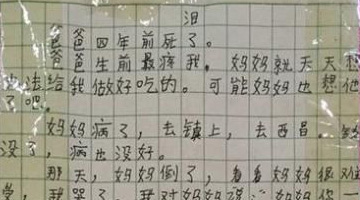 泪
爸爸四年前死了。
爸爸生前最疼我，妈妈就天天想
办法给我做好吃的。可能妈妈也想他
了吧。
妈妈病了，去镇上，去西昌。钱
没了，病也没好。
那天，妈妈倒了，看看妈妈很难
我哭了。我对妈妈说：妈妈你一